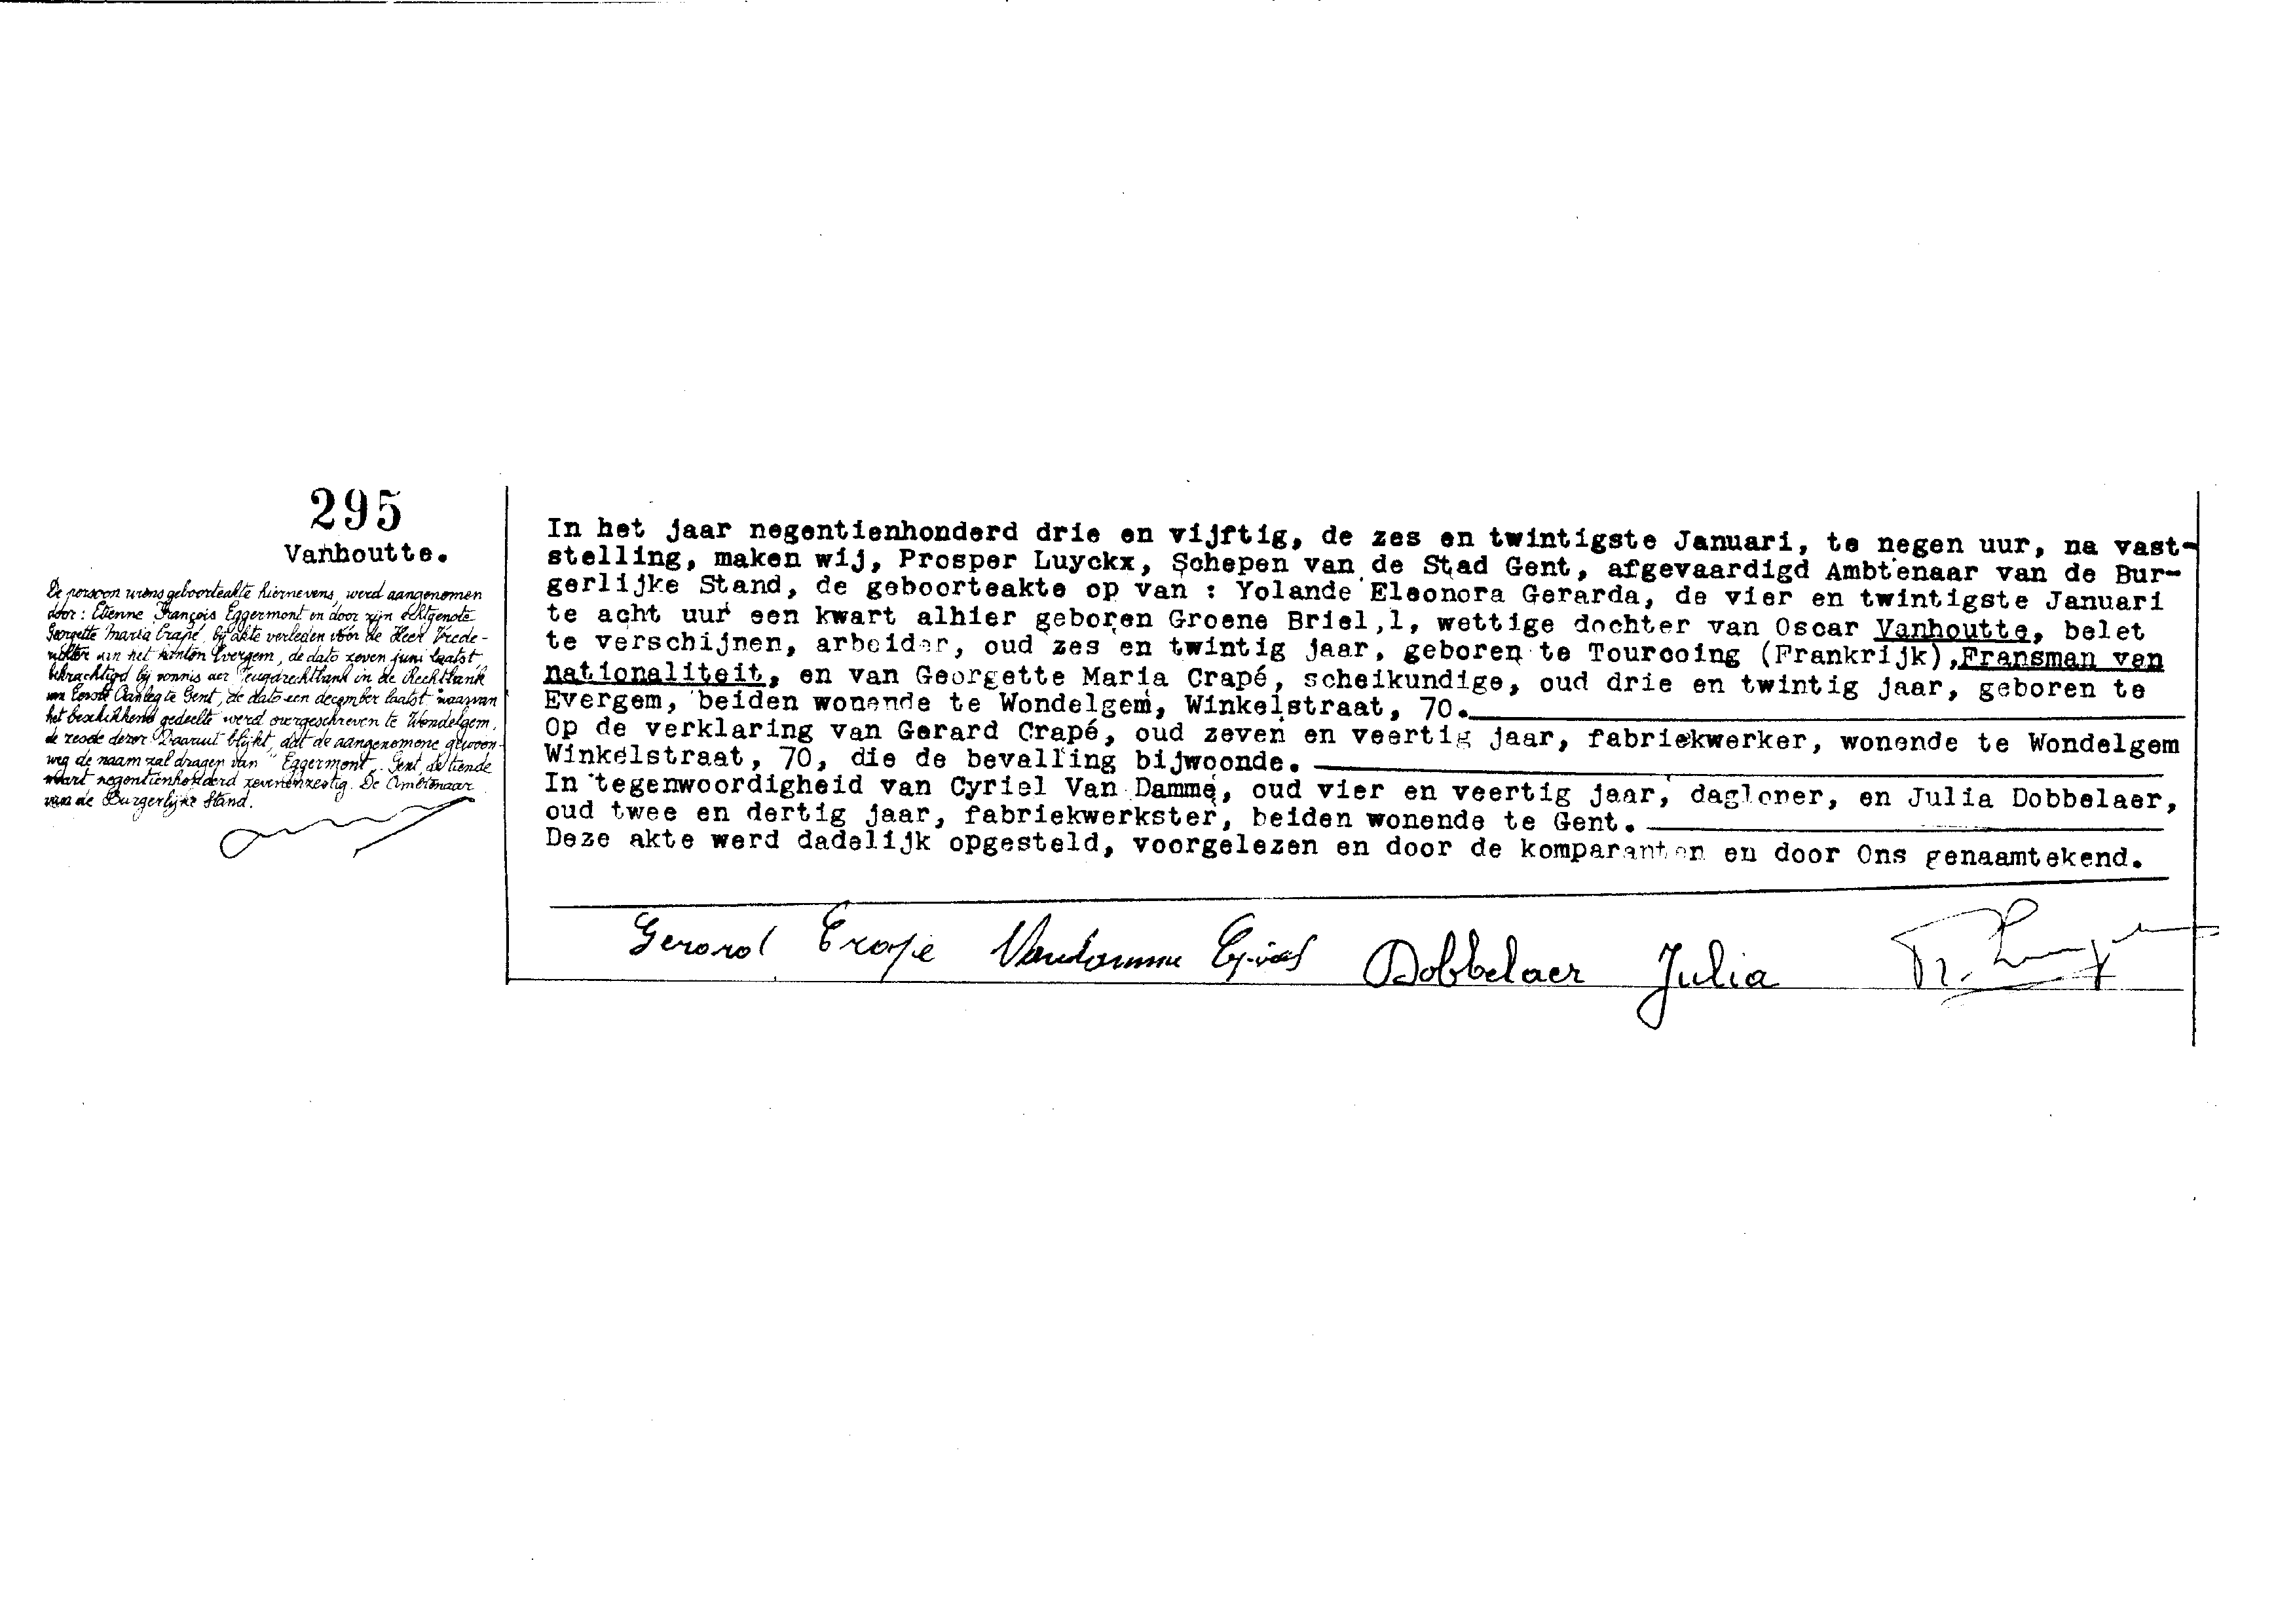 295
Vanhoutte.
De persoon wiens geboorteakte hiernevens, werd aangenomen
door: Etienne François Eggermont en door zijn echtgenote
Georgette Maria Crapé, bij akte verleden vóór de Heer Vrede-
rechter van het kanton Evergem, de dato zeven juni laatst
bekrachtigd bij vonnis der Jeugdrechtbank in de Rechtbank
van Eerste Aanleg te Gent, de dato een december laatst waarvan
het beschikkend gedeelte werd overgeschreven te Wondelgem,
de zesde dezer. Daaruit blijkt, dat de aangenomene gewoon-
weg de naam zal dragen van "Eggermont. Gent, de tiende
maart negentienhonderd zevenenzestig. De Ambtenaar
van de Burgerlijke Stand.
In het jaar negentienhonderd drie en vijftig, de zes en twintigste Januari, te negen uur, na vast-
stelling, maken wij, Prosper Luyckx, Schepen van de Stad Gent, afgevaardigd Ambtenaar van de Bur-
gerlijke Stand, de geboorteakte op van : Yolande Eleonora Gerarda, de vier en twintigste Januari
te acht uur een kwart alhier geboren Groene Briel,1, wettige dochter van Oscar Vanhoutte, belet
te verschijnen, arbeider, oud zes en twintig jaar, geboren te Tourcoing (Frankrijk),Fransman van
nationaliteit, en van Georgette Maria Crapé, scheikundige, oud drie en twintig jaar, geboren te
Evergem, beiden wonende te Wondelgem, Winkelstraat, 70.
Op de verklaring van Gerard Crapé, oud zeven en veertig jaar, fabriekwerker, wonende te Wondelgem
Winkelstraat, 70, die de bevalling bijwoonde.
In tegenwoordigheid van Cyriel Van Damme, oud vier en veertig jaar, dagloner, en Julia Dobbelaer,
oud twee en dertig jaar, fabriekwerkster, beiden wonende te Gent.
Deze akte werd dadelijk opgesteld, voorgelezen en door de komparanten en door Ons genaamtekend.
Gerard Crape Vandamme Cyriel Dobbelaer Julia